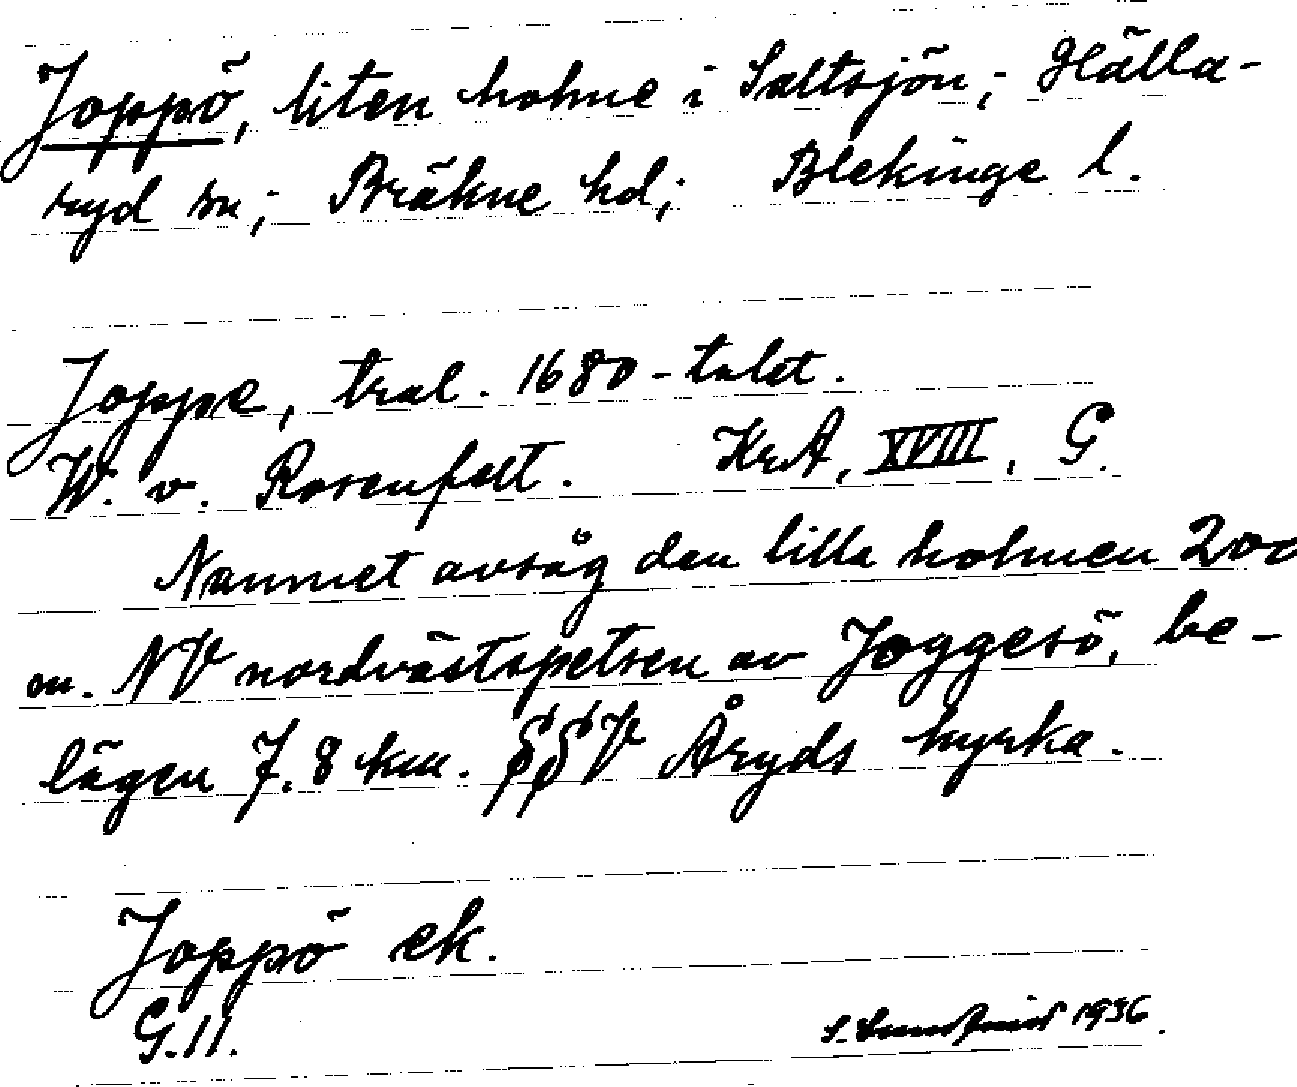 Joppö, liten holme i Saltsjön; Hälla-
ryd sn; Bräkne hd; Blekinge l.
Joppe, tral. 1680-talet.
W. v. Rosenfelt. KrA, XVIII, G.
Namnet avsåg den lilla holmen 200
m. NV nordvästspetsen av Joggesö, be-
lägen 7.8 km. SSV Åryds kyrka.
Joppö ek.
G.11.
S. 1936.